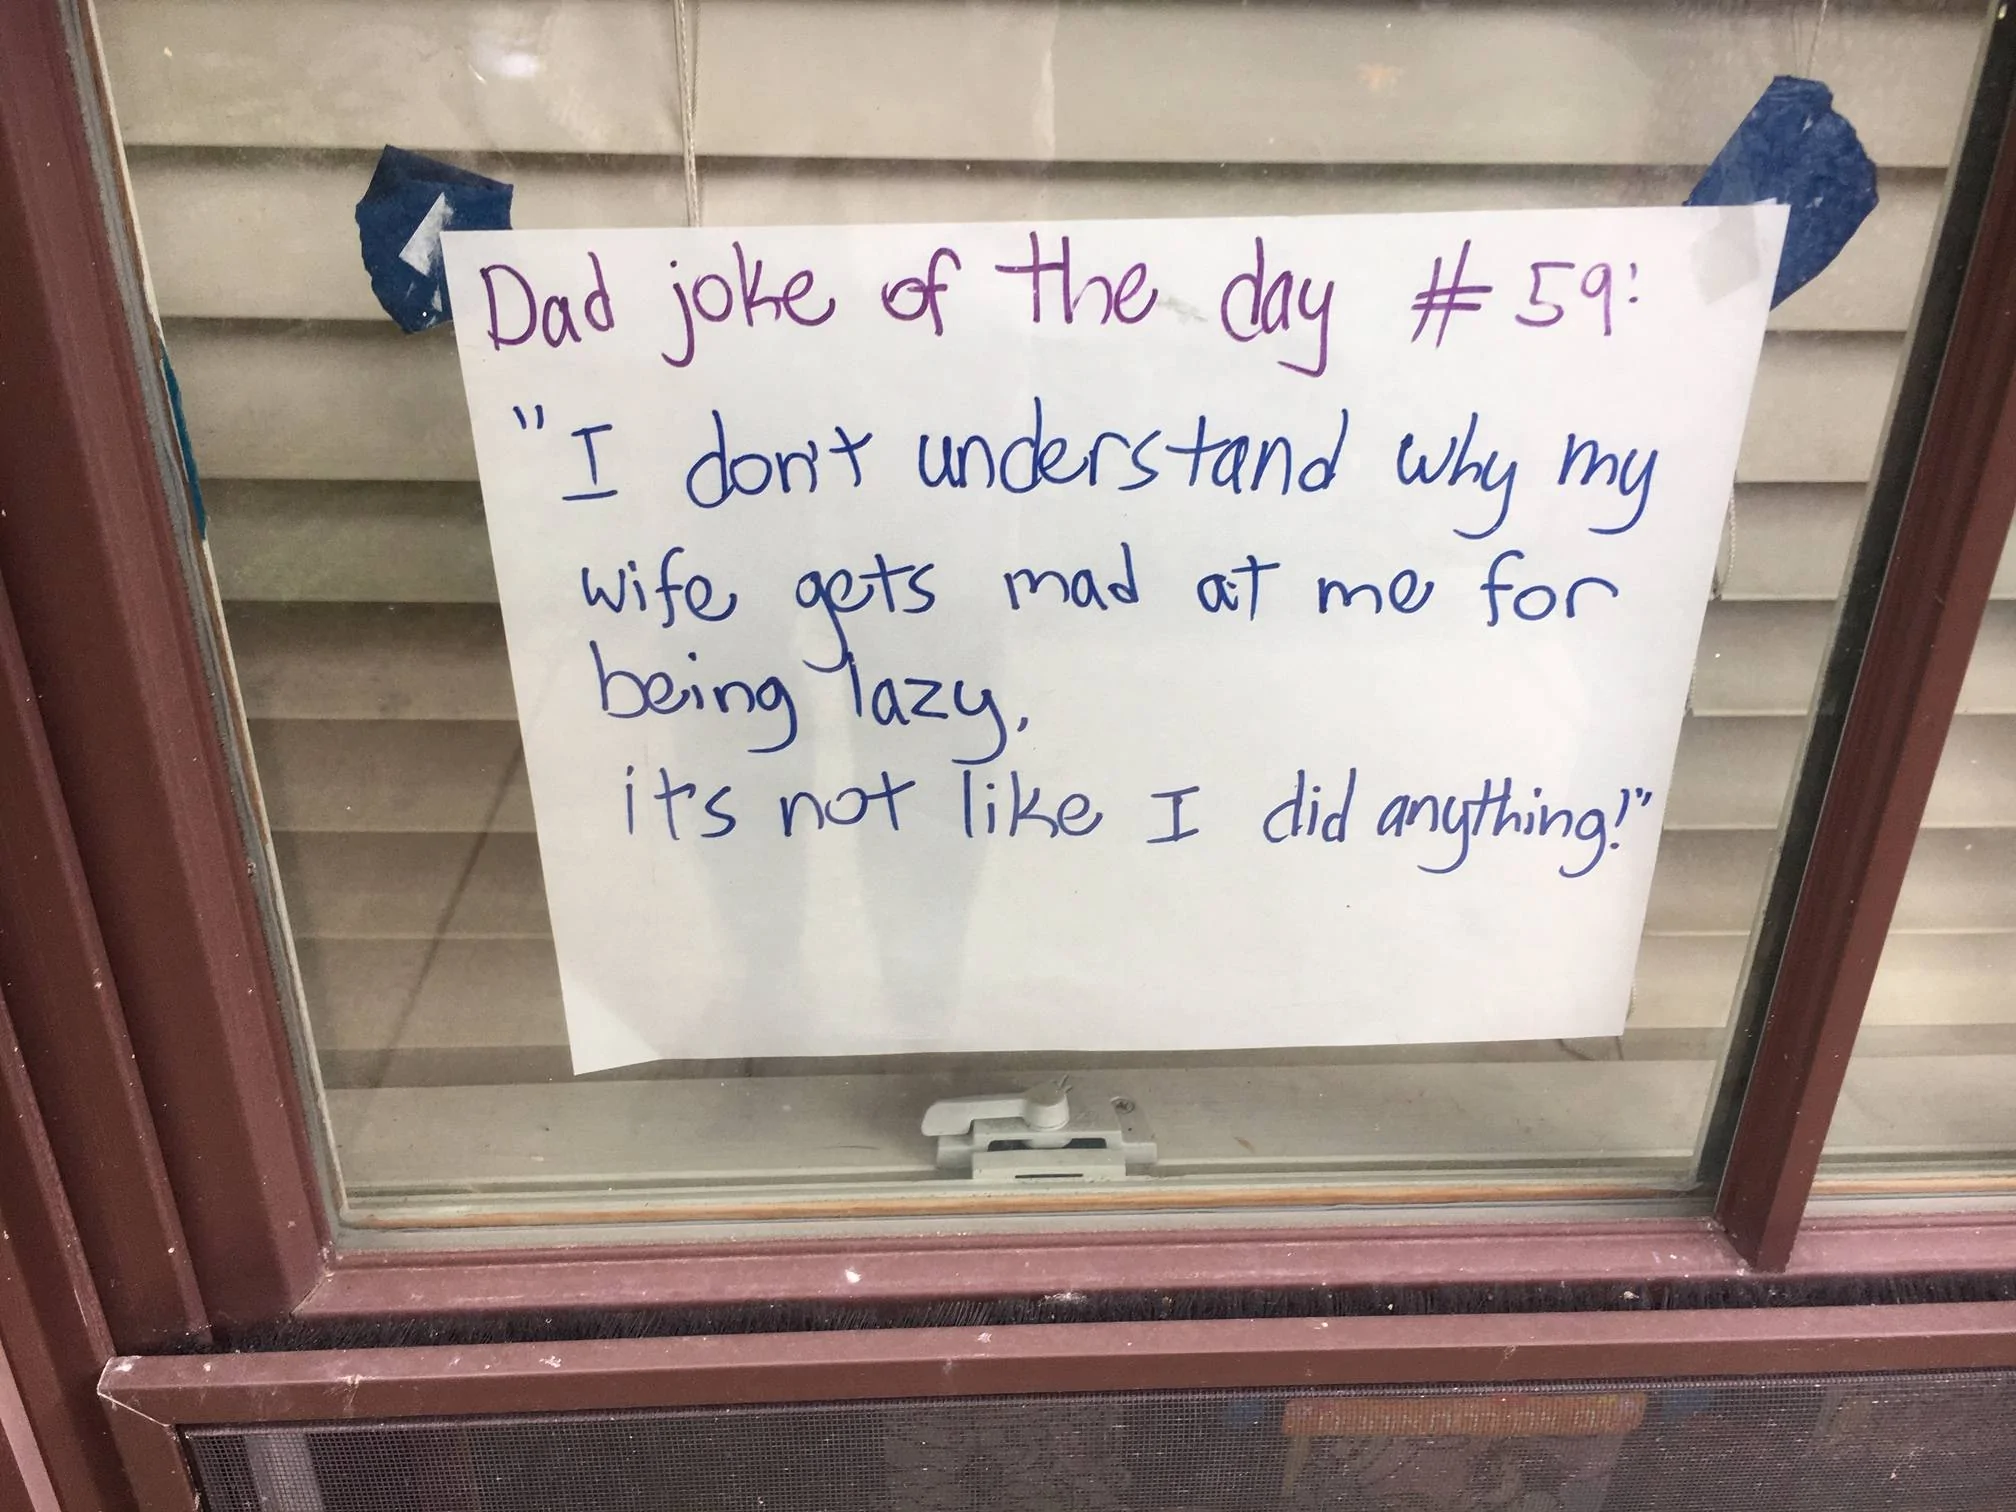 Dad joke of the day # 59:
"I don't understand why my
wife gets mad at me for
being lazy,
it's not like I did anything!"